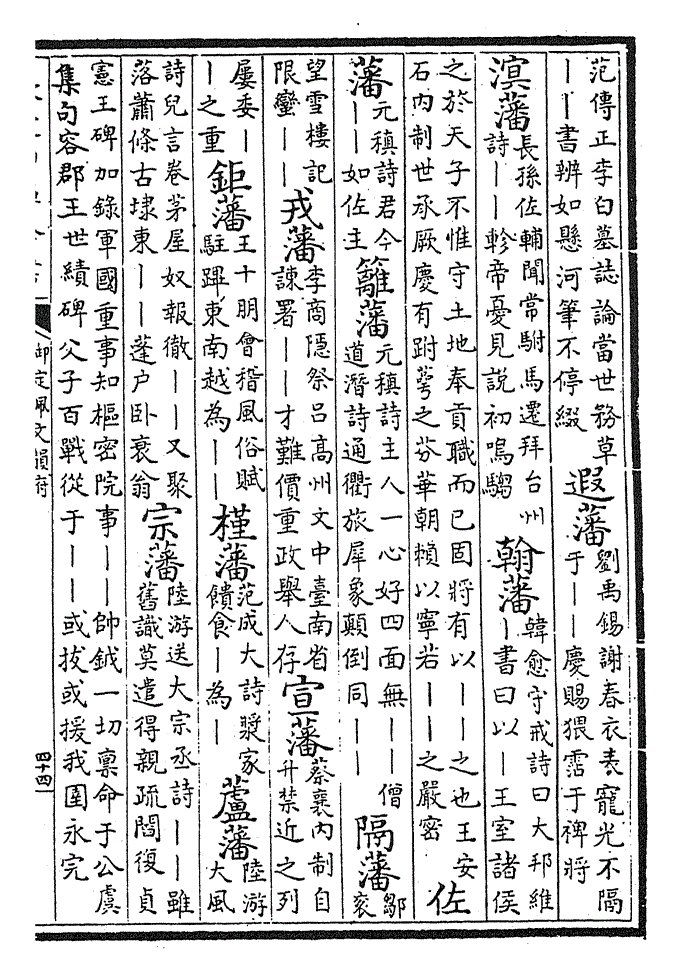 范傳正李白墓誌論當世務草
——書辨如懸河筆不停綴
遐藩
劉禹錫謝春衣表寵光不隔
于——慶賜猥霑于裨將
溟藩
長孫佐輔聞常駙馬遷拜台州
詩——軫帝憂見說初鳴騶
翰藩
韓愈守戒詩曰大邦維
—書曰以—王室諸侯
之於天子不惟守土地奉貢職而已固將有以——之也王安
石内制世承厥慶有跗萼之芬華朝賴以寧若——之嚴密
佐
藩
元稹詩君今
——如佐主
籬藩
元稹詩主人一心好四面無——僧
道潛詩通衢旅犀象顛倒同——
隔藩
鄒
衮
望雪樓記
限蠻——
戎藩
李商隱祭吕高州文中臺南省
諫署——才難價重政舉人存
宣藩
蔡襄内制自
升禁近之列
屢委—
—之重
鉅藩
王十朋會稽風俗賦
駐蹕東南越為——
槿藩
范成大詩漿家
饋食—為—
蘆藩
陸游
大風
詩兒言卷茅屋奴報徹——又聚
落蕭條古埭東——蓬户卧衰翁
宗藩
陸游送大宗丞詩——雖
舊識莫遣得親疏閻復貞
憲王碑加錄軍國重事知樞密院事——帥鉞一切禀命于公虞
集句容郡王世績碑父子百戰從于——或拔或援我圉永完
御定佩文韻府
四十四